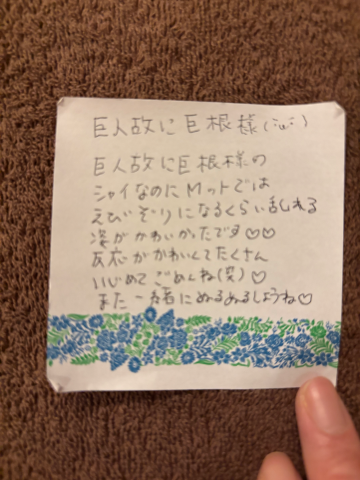 巨人故に巨根様(˙ω˙)
巨人故に巨根様の
シャイなのにMットでは
えびぞりになるくらい乱れる
姿がかわいかったです♡♡
反応がかわいくてたくさん
いじめてごめんね(笑)♡
また一緒にぬるぬるしようね♡